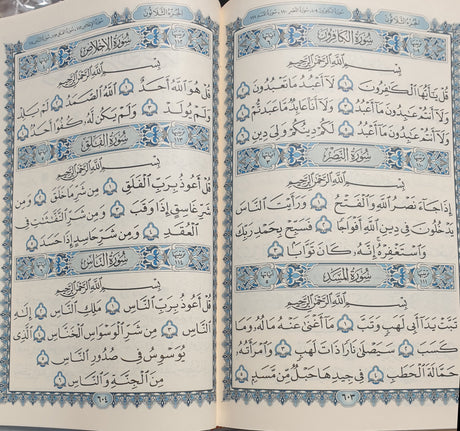 سُورَةُ الكَافِرُونَ
بِسْمِ اللَّهِ الرَّحْمَٰنِ الرَّحِيمِ
قُلْ يَٰٓأَيُّهَا ٱلْكَٰفِرُونَ ١ لَآ أَعْبُدُ مَا تَعْبُدُونَ ٢
وَلَآ أَنتُمْ عَٰبِدُونَ مَآ أَعْبُدُ ٣ وَلَآ أَنَا۠ عَابِدٌ مَّا عَبَدتُّمْ ٤
وَلَآ أَنتُمْ عَٰبِدُونَ مَآ أَعْبُدُ ٥ لَكُمْ دِينُكُمْ وَلِىَ دِينِ ٦
سُورَةُ النَّصْرِ
بِسْمِ اللَّهِ الرَّحْمَٰنِ الرَّحِيمِ
إِذَا جَآءَ نَصْرُ ٱللَّهِ وَٱلْفَتْحُ ١ وَرَأَيْتَ ٱلنَّاسَ
يَدْخُلُونَ فِى دِينِ ٱللَّهِ أَفْوَاجًا ٢ فَسَبِّحْ بِحَمْدِ رَبِّكَ
وَٱسْتَغْفِرْهُ إِنَّهُۥ كَانَ تَوَّابًۢا ٣
سُورَةُ المَسَدِ
بِسْمِ اللَّهِ الرَّحْمَٰنِ الرَّحِيمِ
تَبَّتْ يَدَآ أَبِى لَهَبٍ وَتَبَّ ١ مَآ أَغْنَىٰ عَنْهُ مَالُهُۥ وَمَا
كَسَبَ ٢ سَيَصْلَىٰ نَارًا ذَاتَ لَهَبٍ ٣ وَٱمْرَأَتُهُۥ
حَمَّالَةَ ٱلْحَطَبِ ٤ فِى جِيدِهَا حَبْلٌ مِّن مَّسَدٍۭ ٥
٦٠٣
الجُزْءُ الثَّلَاثُونَ
سُورَةُ الإِخْلَاصِ
بِسْمِ اللَّهِ الرَّحْمَٰنِ الرَّحِيمِ
قُلْ هُوَ ٱللَّهُ أَحَدٌ ١ ٱللَّهُ ٱلصَّمَدُ ٢ لَمْ يَلِدْ
وَلَمْ يُولَدْ ٣ وَلَمْ يَكُن لَّهُۥ كُفُوًا أَحَدٌۢ ٤
سُورَةُ الفَلَقِ
بِسْمِ اللَّهِ الرَّحْمَٰنِ الرَّحِيمِ
قُلْ أَعُوذُ بِرَبِّ ٱلْفَلَقِ ١ مِن شَرِّ مَا خَلَقَ ٢ وَمِن
شَرِّ غَاسِقٍ إِذَا وَقَبَ ٣ وَمِن شَرِّ ٱلنَّفَّٰثَٰتِ فِى
ٱلْعُقَدِ ٤ وَمِن شَرِّ حَاسِدٍ إِذَا حَسَدَ ٥
سُورَةُ النَّاسِ
بِسْمِ اللَّهِ الرَّحْمَٰنِ الرَّحِيمِ
قُلْ أَعُوذُ بِرَبِّ ٱلنَّاسِ ١ مَلِكِ ٱلنَّاسِ ٢ إِلَٰهِ
ٱلنَّاسِ ٣ مِن شَرِّ ٱلْوَسْوَاسِ ٱلْخَنَّاسِ ٤ ٱلَّذِى
يُوَسْوِسُ فِى صُدُورِ ٱلنَّاسِ ٥
مِنَ ٱلْجِنَّةِ وَٱلنَّاسِ ٦
٦٠٤